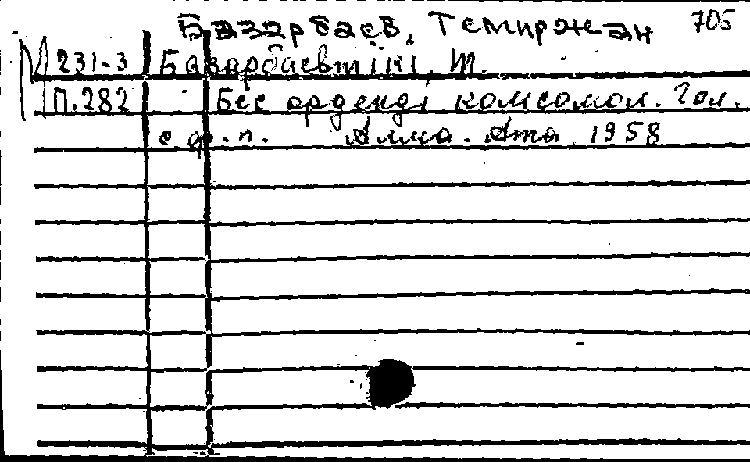 Базарбаев, Темиржан 705
231-3 Базарбаевтікі, Т.
П.282 Бес орденді комсомол.
Алма-Ата 1958